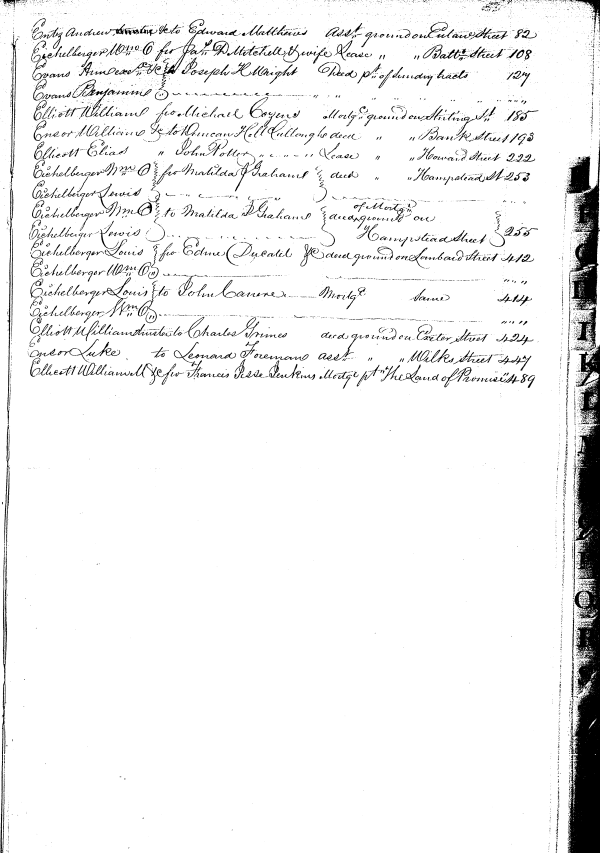 Entz Andrew &c to Edward Matthews Asst. ground on Eutaw Street 82
Eichelberger Wm. O fro Jas. D. Mitchell & wife Lease " " Batte. Street 108
Evans Ann exr. &c to Joseph K. Maight Deed pt. of sundry tracts 127
Evans Benjamin " " " " "
Elliott William fro Michael Coyens Mortge. ground on Stirling St. 185
Ensor William &c to Duncan McCullough deed " " Bank Street 193
Ellicott Elias " John Potter " " " Lease " " Howard Street 222
Eichelberger Wm. O fro Matilda J Graham deed " " Hampstead St 253
Eichelberger Lewis
Eichelberger Wm O to Matilda J Graham deed of Mortge. ground on
Eichelberger Lewis Hampstead Street 255
Eichelberger Louis fro Edme Ducatel &c deed ground on Lombard Street 412
Eichelberger Wm O " " "
Eichelberger Louis to John Carrere Mortge. same 414
Eichelberger Wm. O " " "
Elliott William trustee to Charles Grimes deed ground on Exeter Street 424
Ensor Luke to Leonard Foreman asst. " " Wilks Street 447
Ellicott William M &c fro Francis Jesse Jenkins Mortge pt. "The Land of Promise" 489